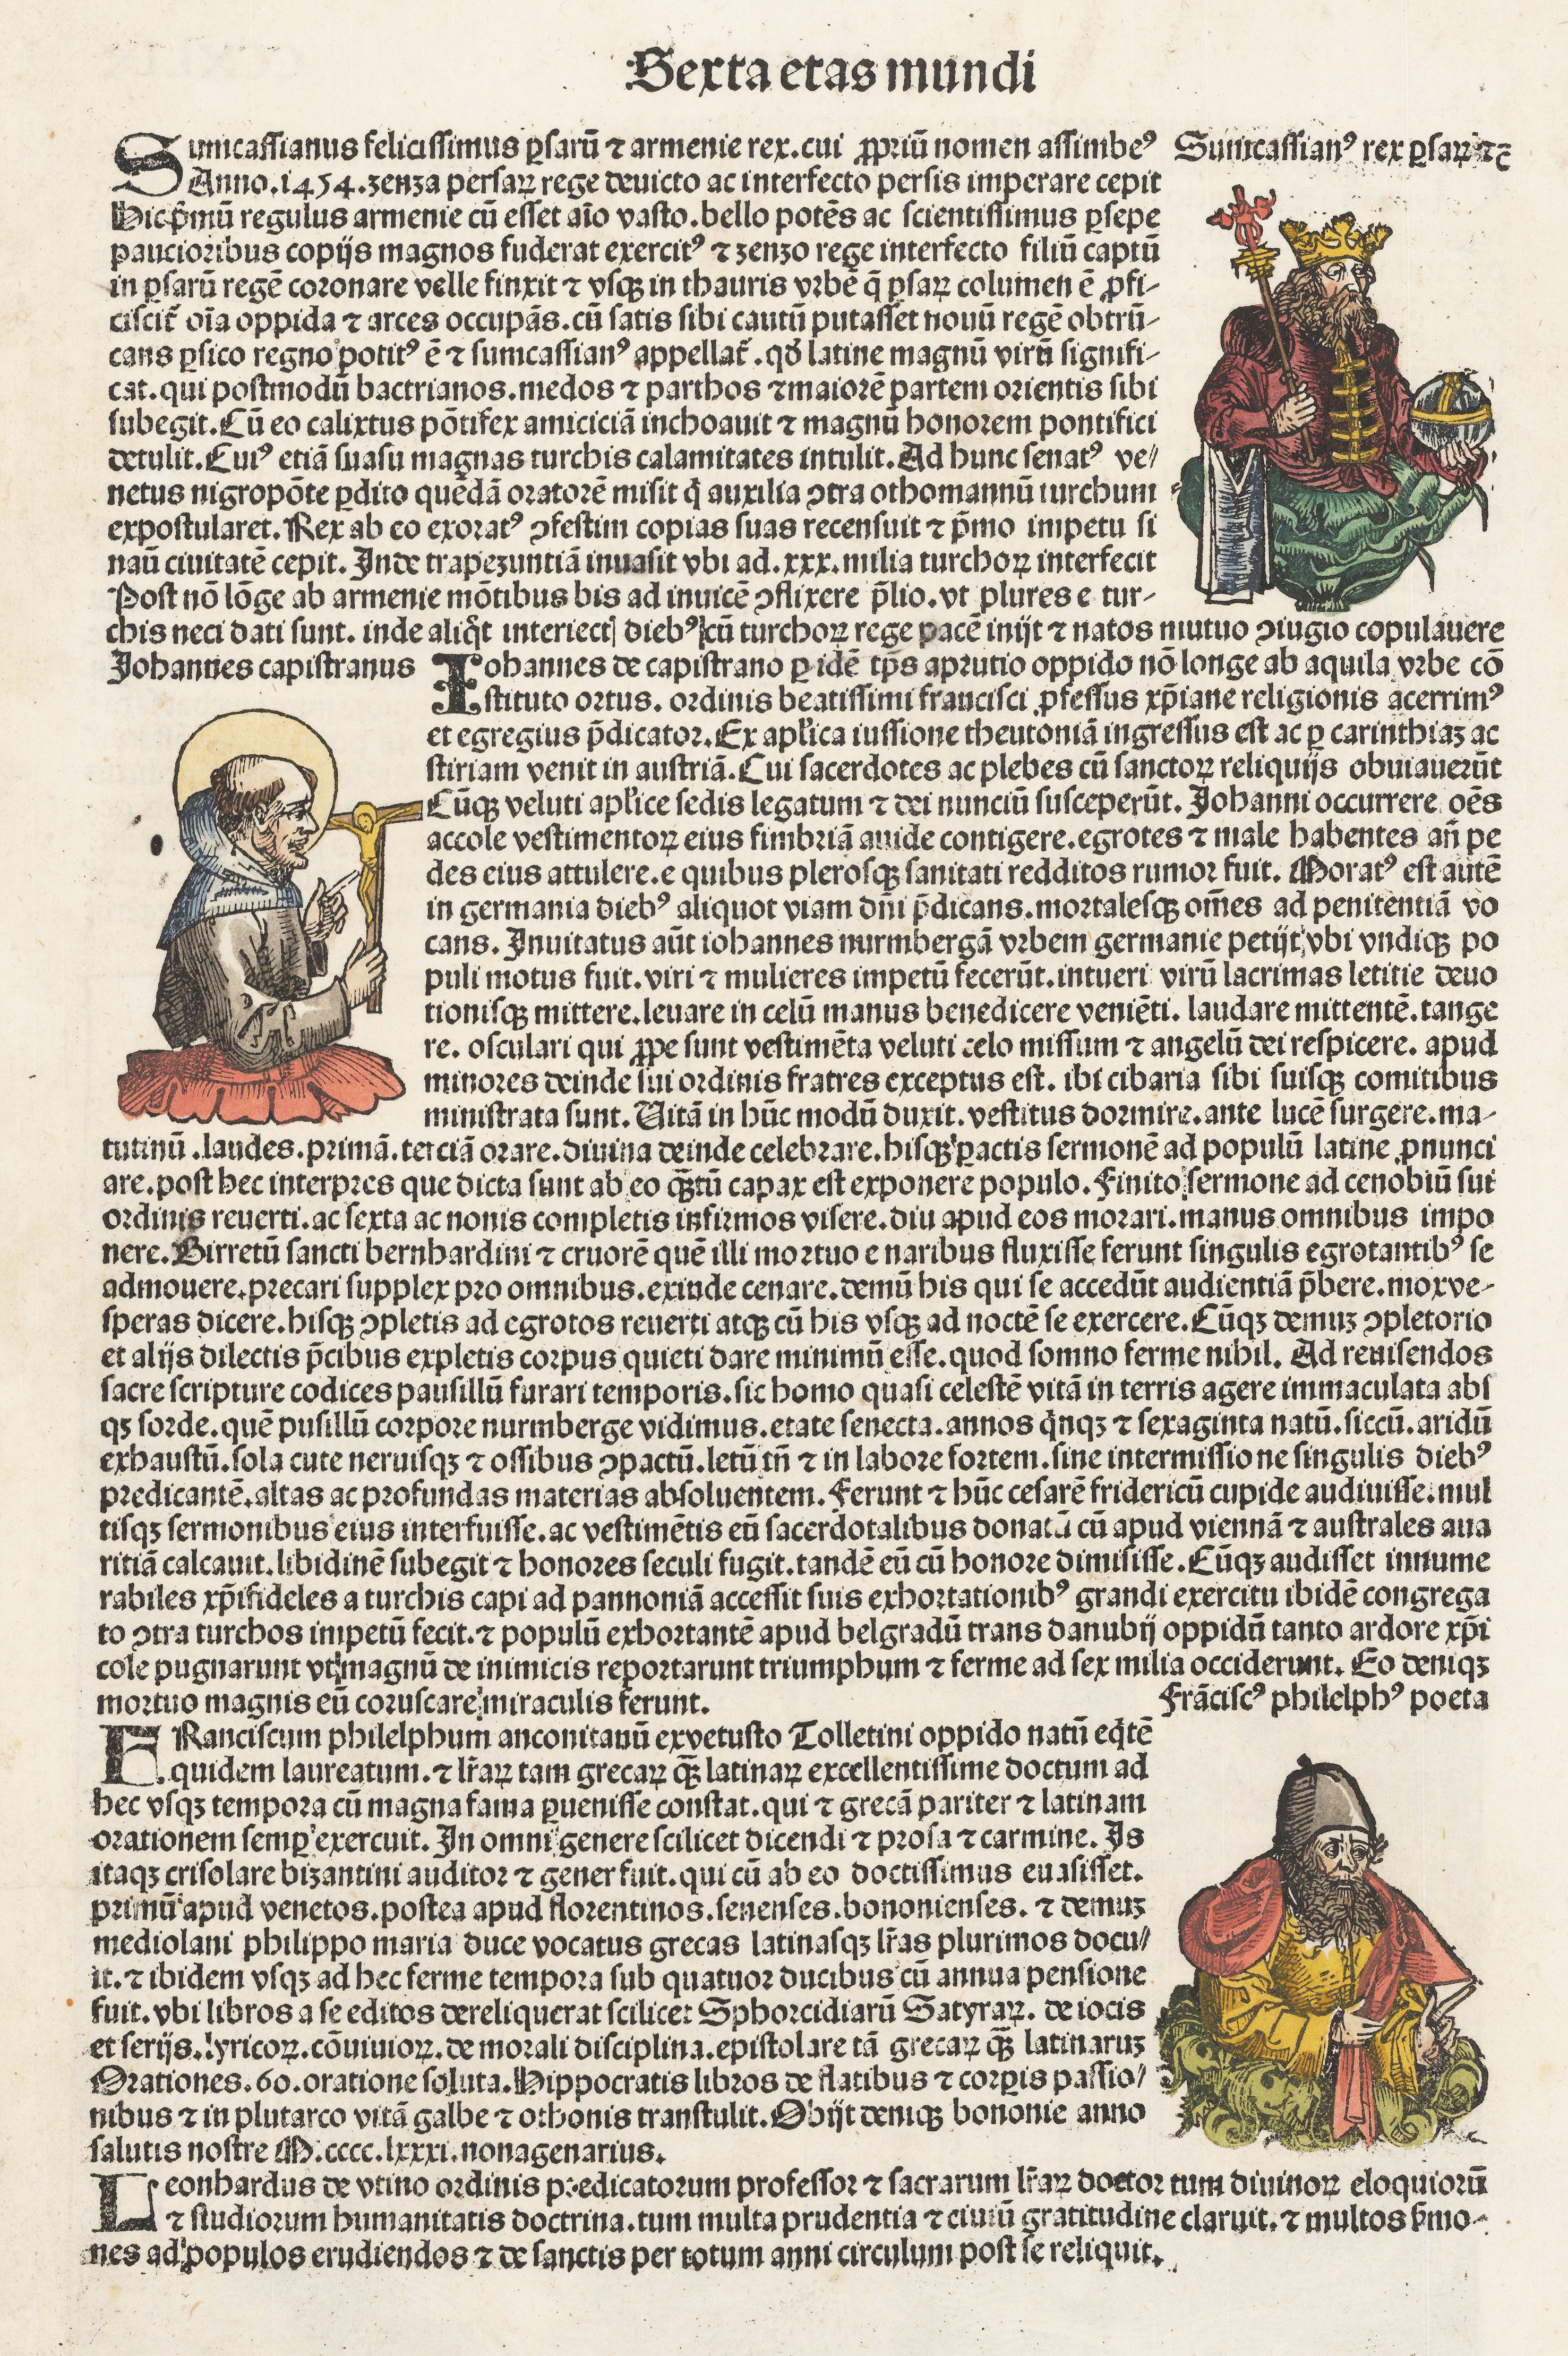 Sexta etas mundi
Sumcassianus felicissimus ꝑsarū ⁊ armenie rex.cui ꝓpriū nomen assimbeꝰ
Sumcassianꝰ rex ꝑsaꝝ ⁊c̄
Anno.1454.zenza persaꝝ rege deuicto ac interfecto persis imperare cepit
Hic pͥmū regulus armenie cū esset aīo vasto.bello potēs ac scientissimus ꝑsepe
paucioribus copijs magnos fuderat exercitꝰ ⁊ zenzo rege interfecto filiū captū
in ꝑsarū regē coronare velle finxit ⁊ vsqꝫ in thauris vrbē q̄ ꝑsaꝝ columen ē ꝓfi-
ciscit̄ oīa oppida ⁊ arces occupās.cū satis sibi cautū putasset nouū regē obtrū-
cans ꝑsico regno potitꝰ ē ⁊ sumcassianꝰ appellat̄.qđ latine magnū virū signifi-
cat.qui postmodū bactrianos.medos ⁊ parthos ⁊ maiorē partem orientis sibi
subegit.Cū eo calixtus pōtifex amiciciā inchoauit ⁊ magnū honorem pontifici
detulit.Cuiꝰ etiā suasu magnas turchis calamitates intulit.Ad hunc senatꝰ ve/
netus nigropōte ꝑdito quēdā oratorē misit q̇ auxilia ꝯtra othomannū turchum
expostularet.Rex ab eo exoratꝰ ꝯfestim copias suas recensuit ⁊ pͥmo impetu si
nau ciuitatē cepit.Inde trapezuntiā inuasit vbi ad.xxx.milia turchoꝝ interfecit
Post nō lōge ab armenie mōtibus bis ad inuicē ꝯflixere p̄lio.vt plures e tur-
chis neci dati sunt. inde aliq̇t interiect; diebꝰ cū turchoꝝ rege pacē inijt ⁊ natos mutuo ꝯiugio copulauere
Johannes capistranus
Iohannes de capistrano ꝑ idē tp̄s aprutio oppido nō longe ab aquila vrbe cō
stituto ortus. ordinis beatissimi francisci ꝓfessus xp̄iane religionis acerrimꝰ
et egregius p̄dicator.Ex apl̄ica iussione theutoniā ingressus est ac ꝑ carinthiaꝫ ac
stiriam venit in austriā.Cui sacerdotes ac plebes cū sanctoꝝ reliquijs obuiauerūt
Cūqꝫ veluti apl̄ice sedis legatum ⁊ dei nunciū susceperūt. Johanni occurrere oēs
accole vestimentoꝝ eius fimbriā auide contigere.egrotes ⁊ male habentes an̄ pe
des eius attulere.e quibus plerosqꝫ sanitati redditos rumor fuit. Moratꝰ est autē
in germania diebꝰ aliquot viam dn̄i p̄dicans.mortalesqꝫ om̄es ad penitentiā vo
cans. Inuitatus aūt iohannes nurmbergā vrbem germanie petijt vbi vndiqꝫ po
puli motus fuit.viri ⁊ mulieres impetū fecerūt.intueri virū lacrimas letitie deuo
tionisqꝫ mittere.leuare in celū manus benedicere veniēti. laudare mittentē.tange
re. osculari qui ꝓpe sunt vestimēta veluti celo missum ⁊ angelū dei respicere. apud
minores deinde sui ordinis fratres exceptus est. ibi cibaria sibi suisqꝫ comitibus
ministrata sunt. Vitā in hūc modū duxit.vestitus dormire.ante lucē surgere.ma-
tutinū.laudes.primā.terciā orare.diuina deinde celebrare.hisqꝫ ꝑactis sermonē ad populū latine ꝓnunci
are.post hec interpres que dicta sunt ab eo qꝫ̄tū capax est exponere populo.Finito sermone ad cenobiū sui
ordinis reuerti.ac sexta ac nonis completis infirmos visere.diu apud eos morari.manus omnibus impo
nere.Birretū sancti bernhardini ⁊ cruorē quē illi mortuo e naribus fluxisse ferunt singulis egrotantibꝰ se
admouere.precari supplex pro omnibus.exinde cenare.demū his qui se accedūt audientiā p̄bere.mox ve-
speras dicere.hisqꝫ ꝯpletis ad egrotos reuerti atqꝫ cū his vsqꝫ ad noctē se exercere.Cūqꝫ demuꝫ ꝯpletorio
et alijs dilectis p̄cibus expletis corpus quieti dare minimū esse.quod somno ferme nihil. Ad reuisendos
sacre scripture codices pausillū furari temporis.sic homo quasi celestē vitā in terris agere immaculata abs
qꝫ sorde.quē pusillū corpore nurmberge vidimus.etate senecta.annos q̇nqꝫ ⁊ sexaginta natū.siccū.aridū
exhaustū.sola cute neruisqꝫ ⁊ ossibus ꝯpactū.letū tn̄ ⁊ in labore fortem.sine intermissione singulis diebꝰ
predicantē.altas ac profundas materias absoluentem.Ferunt ⁊ hūc cesarē fridericū cupide audiuisse.mul
tisqꝫ sermonibus eius interfuisse.ac vestimētis eū sacerdotalibus donatū cū apud viennā ⁊ australes aua
ritiā calcauit.libidinē subegit ⁊ honores seculi fugit.tandē eū cū honore dimisisse.Cūqꝫ audisset innume
rabiles xp̄ifideles a turchis capi ad pannoniā accessit suis exhortationibꝰ grandi exercitu ibidē congrega
to ꝯtra turchos impetū fecit.⁊ populū exhortantē apud belgradū trans danubij oppidū tanto ardore xp̄i
cole pugnarunt vt magnū de inimicis reportarunt triumphum ⁊ ferme ad sex milia occiderunt. Eo deniqꝫ
mortuo magnis eū coruscare miraculis ferunt.
Frāciscꝰ philelphꝰ poeta
FRanciscum philelphum anconitanū ex vetusto Tolletini oppido natū eq̇tē
quidem laureatum.⁊ lr̄aꝝ tam grecaꝝ qꝫ̄ latinaꝝ excellentissime doctum ad
hec vsqꝫ tempora cū magna fama ꝑuenisse constat.qui ⁊ grecā pariter ⁊ latinam
orationem semꝑ exercuit. In omni genere scilicet dicendi ⁊ prosa ⁊ carmine. Is
itaqꝫ crisolare bizantini auditor ⁊ gener fuit.qui cū ab eo doctissimus euasisset.
primū apud venetos.postea apud florentinos.senenses.bononienses. ⁊ demuꝫ
mediolani philippo maria duce vocatus grecas latinasqꝫ lr̄as plurimos docu/
it.⁊ ibidem vsqꝫ ad hec ferme tempora sub quatuor ducibus cū annua pensione
fuit.vbi libros a se editos dereliquerat scilicet Sphorcidiarū Satyraꝝ. de iocis
et serijs.lyricoꝝ.cōuiuioꝝ.de morali disciplina.epistolare tā grecaꝝ qꝫ̄ latinaruꝫ
Orationes.60.oratione soluta.Hippocratis libros de flatibus ⁊ corꝑis passio/
nibus ⁊ in plutarco vitā galbe ⁊ othonis transtulit.Obijt deniqꝫ bononie anno
salutis nostre M.cccc.lxxxi.nonagenarius.
Leonhardus de vtino ordinis predicatorum professor ⁊ sacrarum lr̄aꝝ doctor tum diuinoꝝ eloquiorū
⁊ studiorum humanitatis doctrina.tum multa prudentia ⁊ ciuiū gratitudine claruit.⁊ multos ẜmo-
nes ad populos erudiendos ⁊ de sanctis per totum anni circulum post se reliquit.